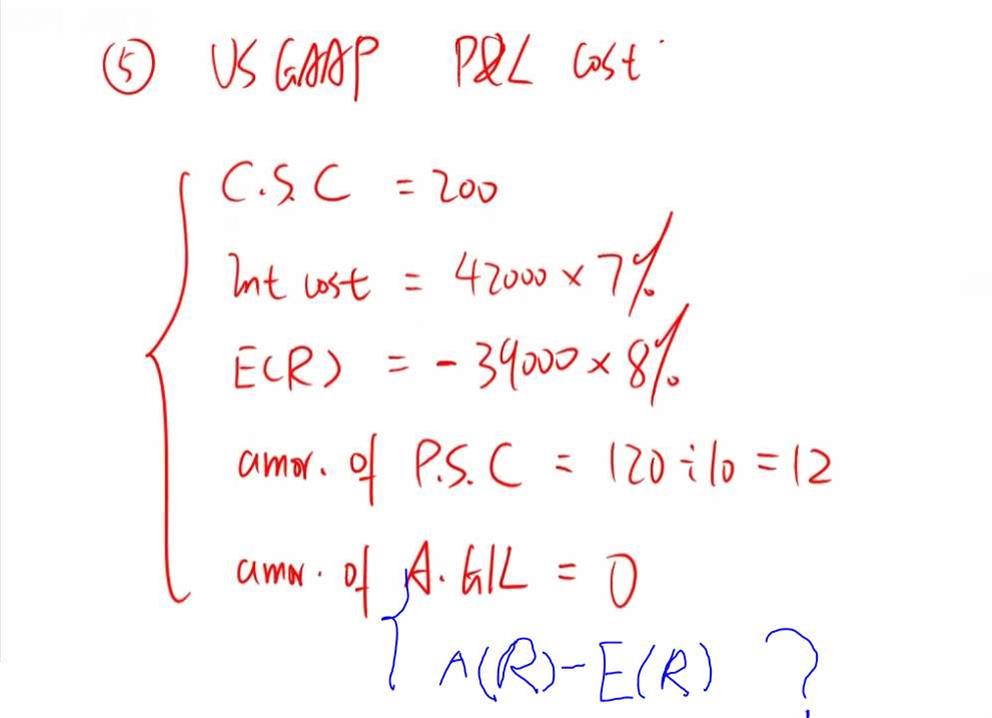 ⑤ US GAAP P&L Cost
C.S.C = 200
Int cost = 42000 × 7%
E(R) = - 39000 × 8%
amor. of P.S.C = 120 ÷ 10 = 12
amor. of A. G/L = 0
A(R) - E(R) ?